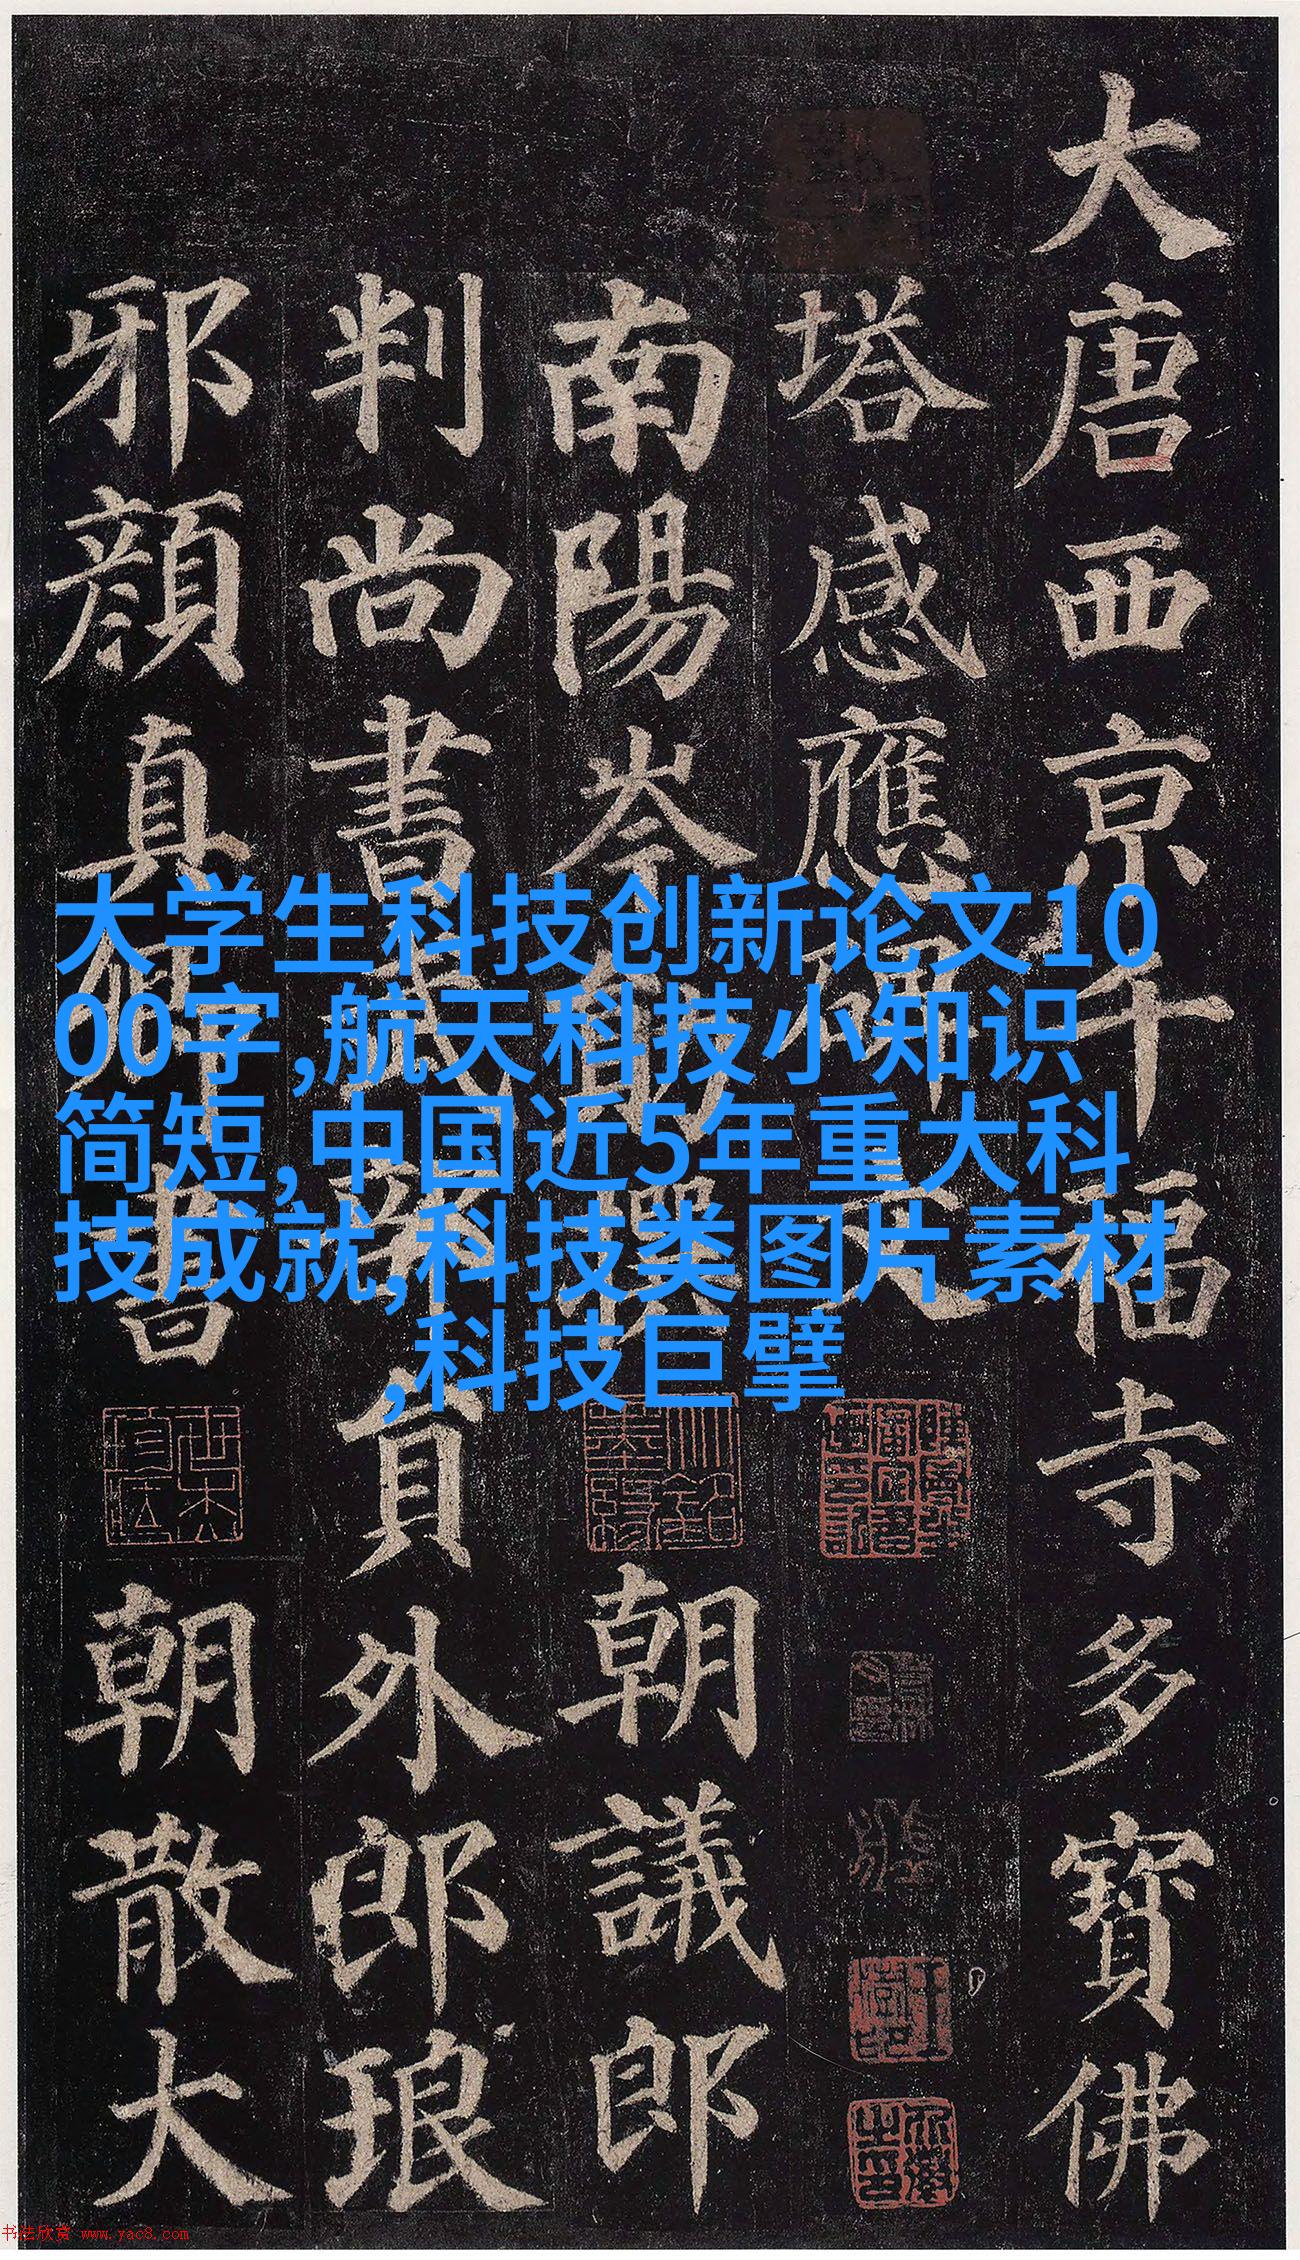 大唐西京千福寺多寶佛
塔感應碑文
南陽岑勛撰
朝議郎
判尚書武部員外郎琅
邪顏真卿書
朝散大
大学生科技创新论文10
00字,航天科技小知识
简短,中国近5年重大科
技成就,科技类图片素材
,科技巨擘
书法欣赏 www.yac8.com